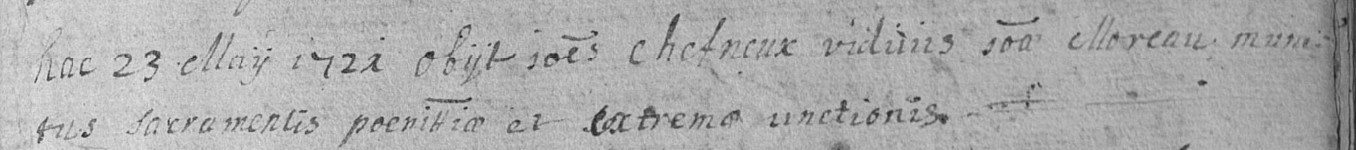 hac 23 Maÿ 1721 obÿt joēs chefneux viduus joā Moreau muni-
tus sacramentis poenitiæ et extremæ unctionis.